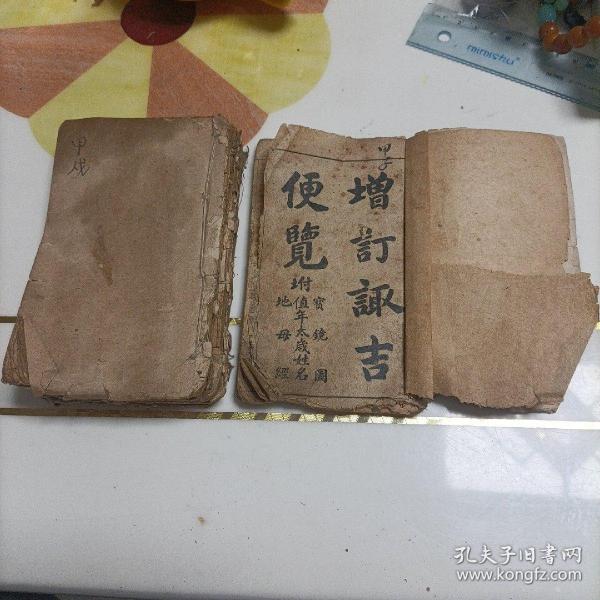 甲戌
甲子
增訂諏吉
便覽
坿
寶鏡圖
值年太歲姓名
地母經
孔夫子旧书网
www.kongfz.com